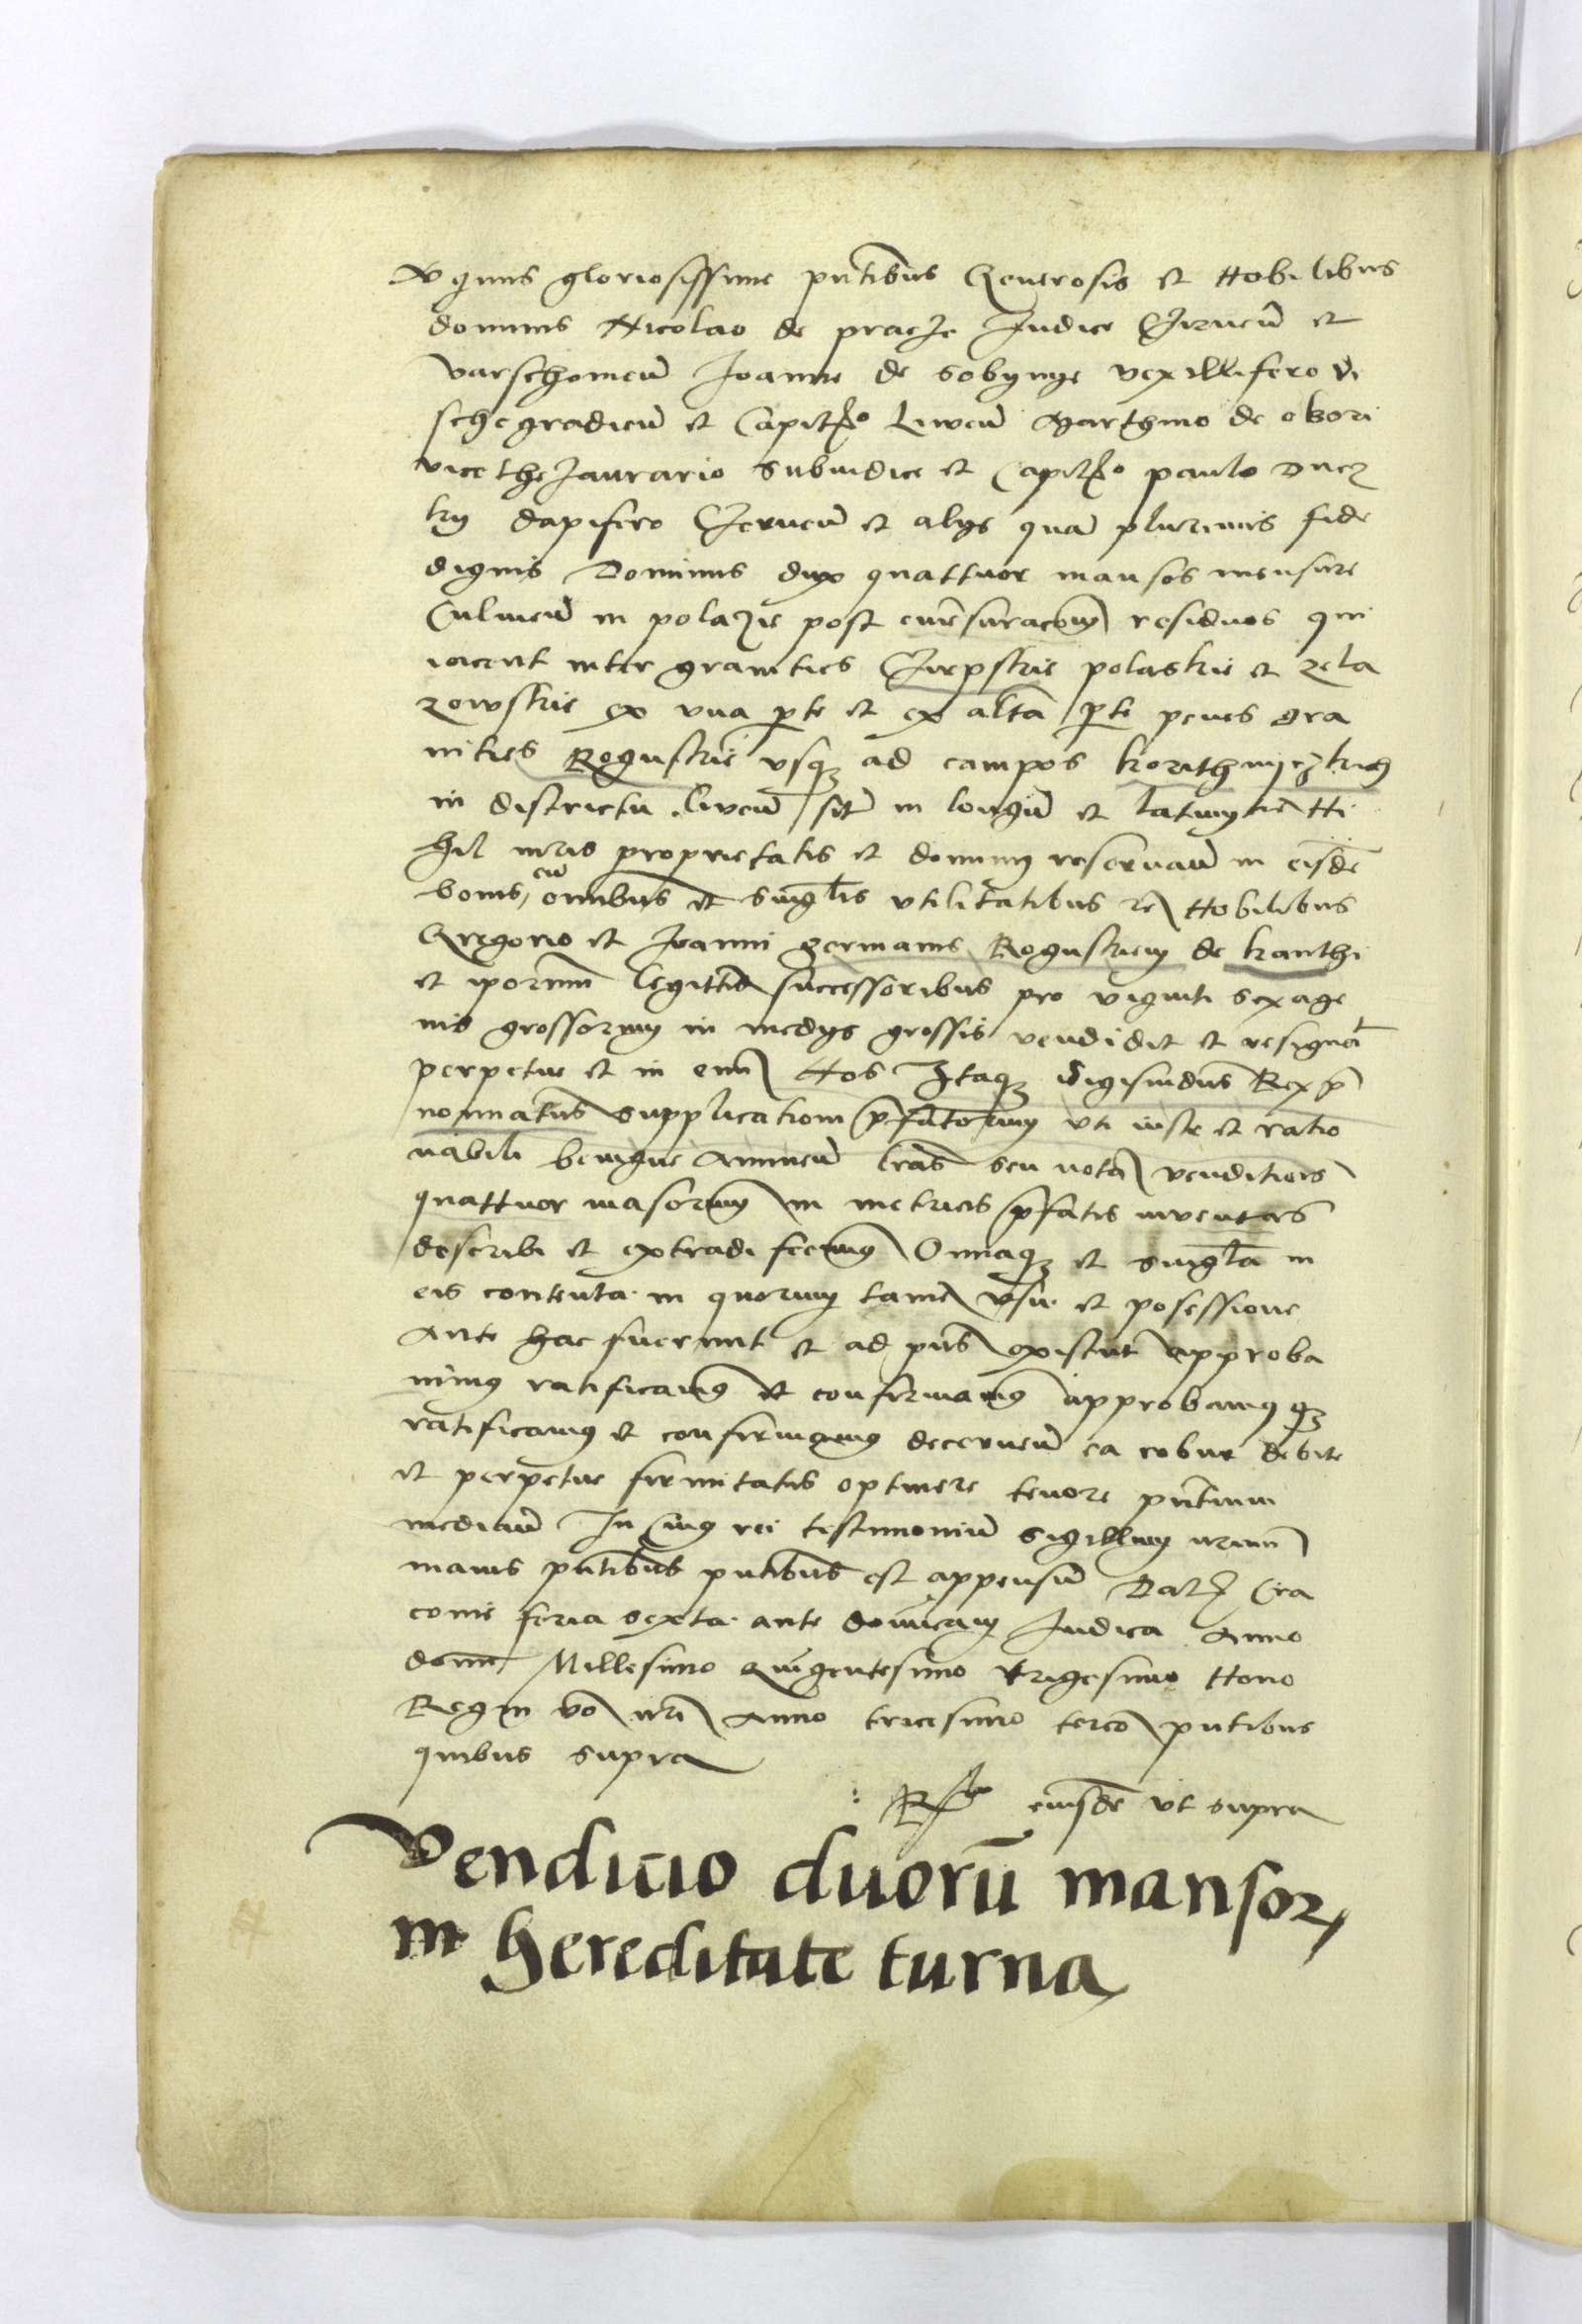 Virginis gloriosissime pntibus Generosis et Nobilibus
dominis Nicolao de pracze Judice Cirnen̄ et
varschouien̄ Joanne de sobynye vexillifero vi
schegradien̄ et Capit̄o Liwen̄ Marthino de obori
vicethezaurario subiudice et Capit̄o paulo Ducz
ky dapifero Czernen̄ et alys quā plurimis fide
dignis Dominus dux quattuor mansos mensure
Culmen̄ in polazie post emēsuracōm residuos qui
iacent inter granities Cirpskie polaskie et zela
zowskie ex vna pte et ex altā pte penes gra
nities Roguskie vsqz ad campos korithnyczkich
in districtu Liwen̄ sit̄ in longū et latum Ni
hil iuris proprietatis et dominy reseruan̄ in eisdē
bonis cū omībus et singlis vtilitatibus Nobilibus
Gregorio et Joanni germanis Roguskiem de kanthi
et ipōrum legittīs successoribus pro viginti sexage
nis grossorum in medys grossis vendidit et resignāt
perpetue et in euū Nos Itaqz Sigismūdus Rex p̄
nominatus supplicationi p̄fatorum vti iuste et ratio
nabili benigne Annuen̄ lrās seu notā venditiōis
quattuor māsorum in metricis p̄fatis inuentas
describi et extradi fecimus Omīaqz et singlā in
eis contenta in quorum tamē vsu et posessione
Ante hac fuerunt et ad pns existūt approba
uimus ratificauimus et confirmauimus approbamusqz
ratificamus et confirmamus decernen̄ ea robur debite
et perpetue firmitatis optinere tenore pntium
median̄ In Cuius rei testimoniū sigillum nrum
maius pntibus pntibus est appensū Dat̄ Cra
couie feria sexta ante dominicam Judica Anno
domī Millesimo Quingentesimo trigesimo Nono
Regni vō nri Anno tricesimo tercō pntibus
quibus supra
Rō eiusdē vt supra
Vendicio duorū mansor
in hereditate turna